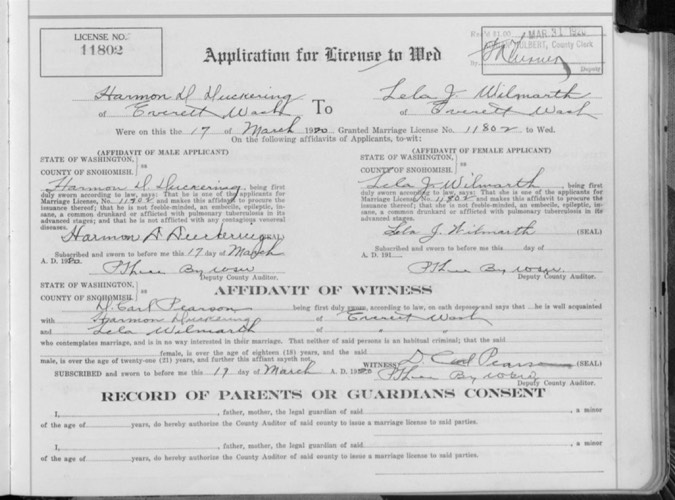 LICENSE NO.
11802
Rec'd $1.00 MAR 31 1920
HULBERT, County Clerk
Deputy
Application for License to Wed
Harmon D Duckering To Lela J Wilmarth
of Everett Wash of Everett Wash
Were on this the 17 of March 1920. Granted Marriage License No. 11802 to Wed.
On the following affidavits of Applicants, to-wit:
(AFFIDAVIT OF MALE APPLICANT)
STATE OF WASHINGTON,
COUNTY OF SNOHOMISH. } ss
Harmon D. Duckering, being first
duly sworn according to law, says: That he is one of the applicants for
Marriage License, No. 11802 and makes this affidavit to procure the
issuance thereof; that he is not feeble-minded, an embecile, epileptic, in-
sane, a common drunkard or afflicted with pulmonary tuberculosis in its
advanced stages; and that he is not afflicted with any contagious venereal
diseases.
Harmon D Duckering
Subscribed and sworn to before me this 17 day of March
A. D. 1920.
Deputy County Auditor.
(AFFIDAVIT OF FEMALE APPLICANT)
STATE OF WASHINGTON,
COUNTY OF SNOHOMISH. } ss
Lela J Wilmarth, being first
duly sworn according to law, says: That she is one of the applicants for
Marriage License, No. 11802 and makes this affidavit to procure the
issuance thereof; that she is not feeble-minded, an embecile, epileptic, in-
sane, a common drunkard or afflicted with pulmonary tuberculosis in its
advanced stages.
Lela J. Wilmarth (SEAL)
Subscribed and sworn to before me this day of
A. D. 191
Deputy County Auditor.
AFFIDAVIT OF WITNESS
STATE OF WASHINGTON,
COUNTY OF SNOHOMISH. } ss
D. Carl Pearson being first duly sworn, according to law, on oath deposes and says that he is well acquainted
with Harmon Duckering of Everett Wash
and Lela Wilmarth of " "
who contemplates marriage, and is in no way interested in their marriage. That neither of said persons is an habitual criminal; that the said
female, is over the age of eighteen (18) years, and the said
male, is over the age of twenty-one (21) years, and further this affiant sayeth not.
WITNESS D Carl Pearson (SEAL)
SUBSCRIBED and sworn to before me this 17 day of March A. D. 1920
Deputy County Auditor.
RECORD OF PARENTS OR GUARDIANS CONSENT
I, , father, mother, the legal guardian of said , a minor
of the age of years, do hereby authorize the County Auditor of said county to issue a marriage license to said parties.
I, , father, mother, the legal guardian of said , a minor
of the age of years, do hereby authorize the County Auditor of said county to issue a marriage license to said parties.